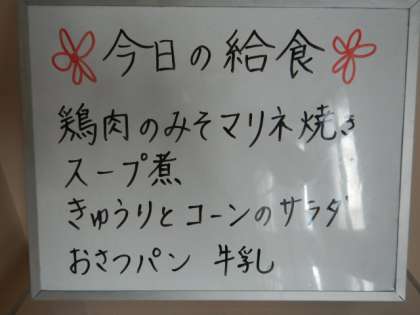 今日の給食
鶏肉のみそマリネ焼き
スープ煮
きゅうりとコーンのサラダ
おさつパン 牛乳